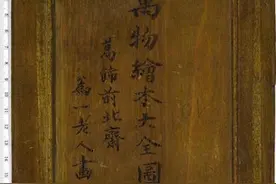 萬物繪夲大全圖
葛飾前北齋
為一老人畫